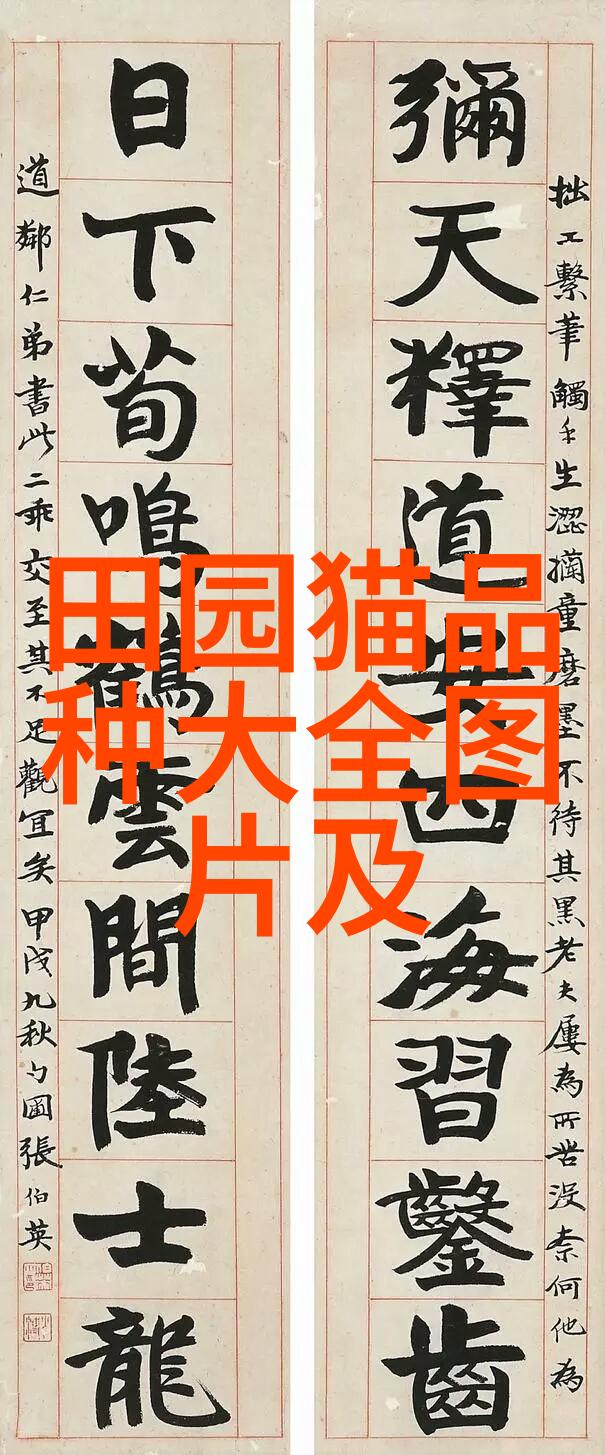 彌天釋道安四海習鑿齒
拙工繫筆觸手生澀摛童磨墨不待其黑老夫屢為所苦沒柰何他為
日下荀鳴鶴雲間陸士龍
道鄰仁弟書此二乖交至其不足觀宜矣甲戌九秋勺圃張伯英
田园猫品
种大全图
片及